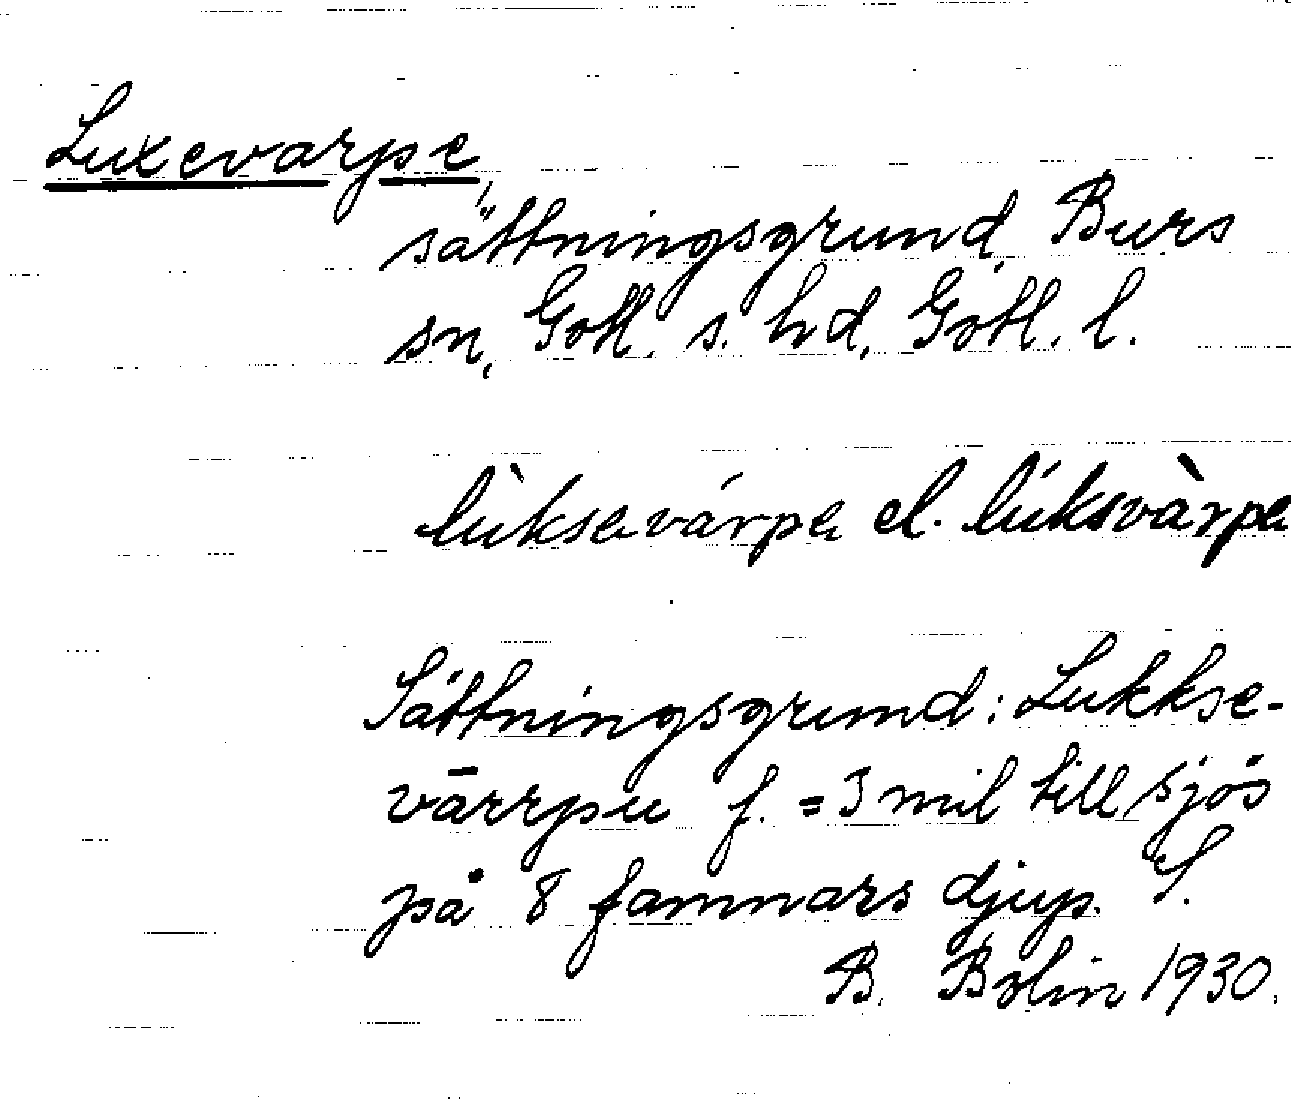 Luxevarpe,
sättningsgrund, Burs
sn, Gotl. s. hd, Gotl. l.
lùksevárpa el. lúksvàrpa
Sättningsgrund: Lukkse-
värrpu f. = 3 mil till sjös
på 8 famnars djup. S.
B. Bolin 1930.